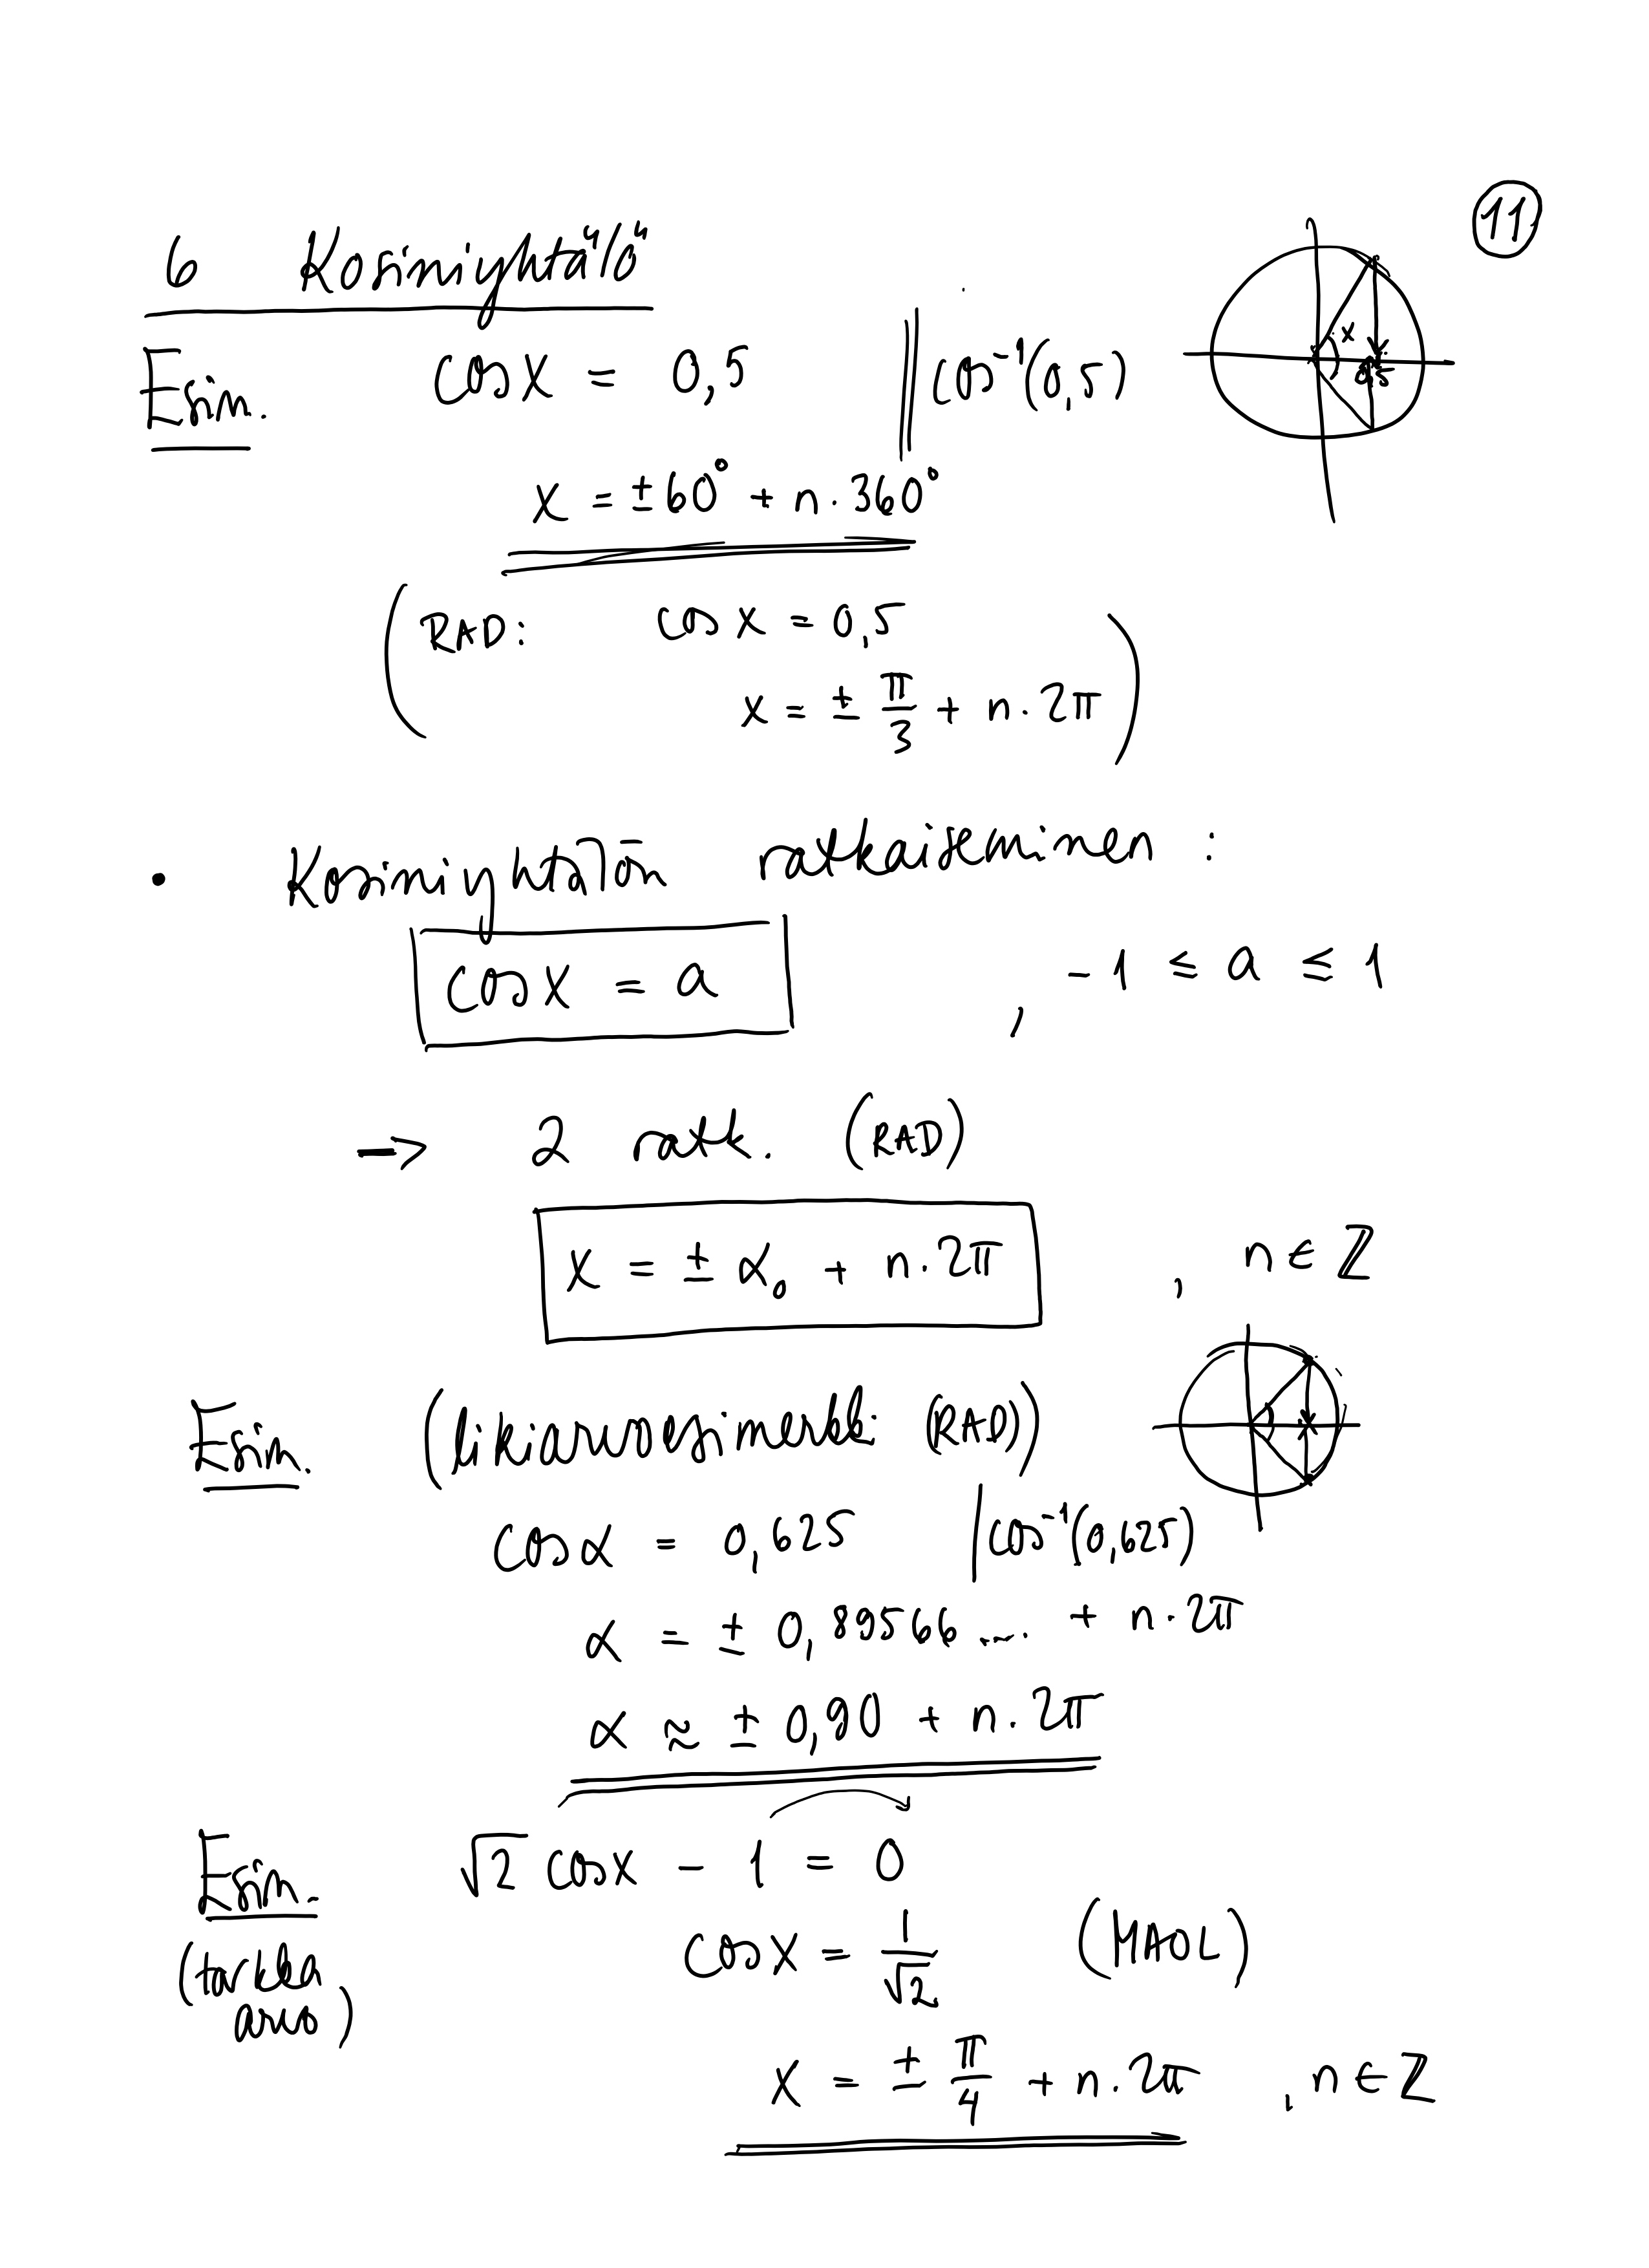 11
6 Kosiniyhtälö
Esim. cos x = 0,5 || cos⁻¹(0,5)
x
0,5
x = ±60° + n·360°
(RAD: cos x = 0,5
x = ± π/3 + n·2π)
• Kosiniyhtälön ratkaiseminen :
cos x = a , -1 ≤ a ≤ 1
→ 2 ratk. (RAD)
x = ± α₀ + n·2π , n ∈ ℤ
Esim. (likiarvoesimerkki (RAD))
cos α = 0,625 | cos⁻¹(0,625)
α = ± 0,89566.... + n·2π
α ≈ ± 0,90 + n·2π
Esim. √2 cos x - 1 = 0
(tarkka arvo) cos x = 1/√2 (MAOL)
x = ± π/4 + n·2π , n ∈ ℤ